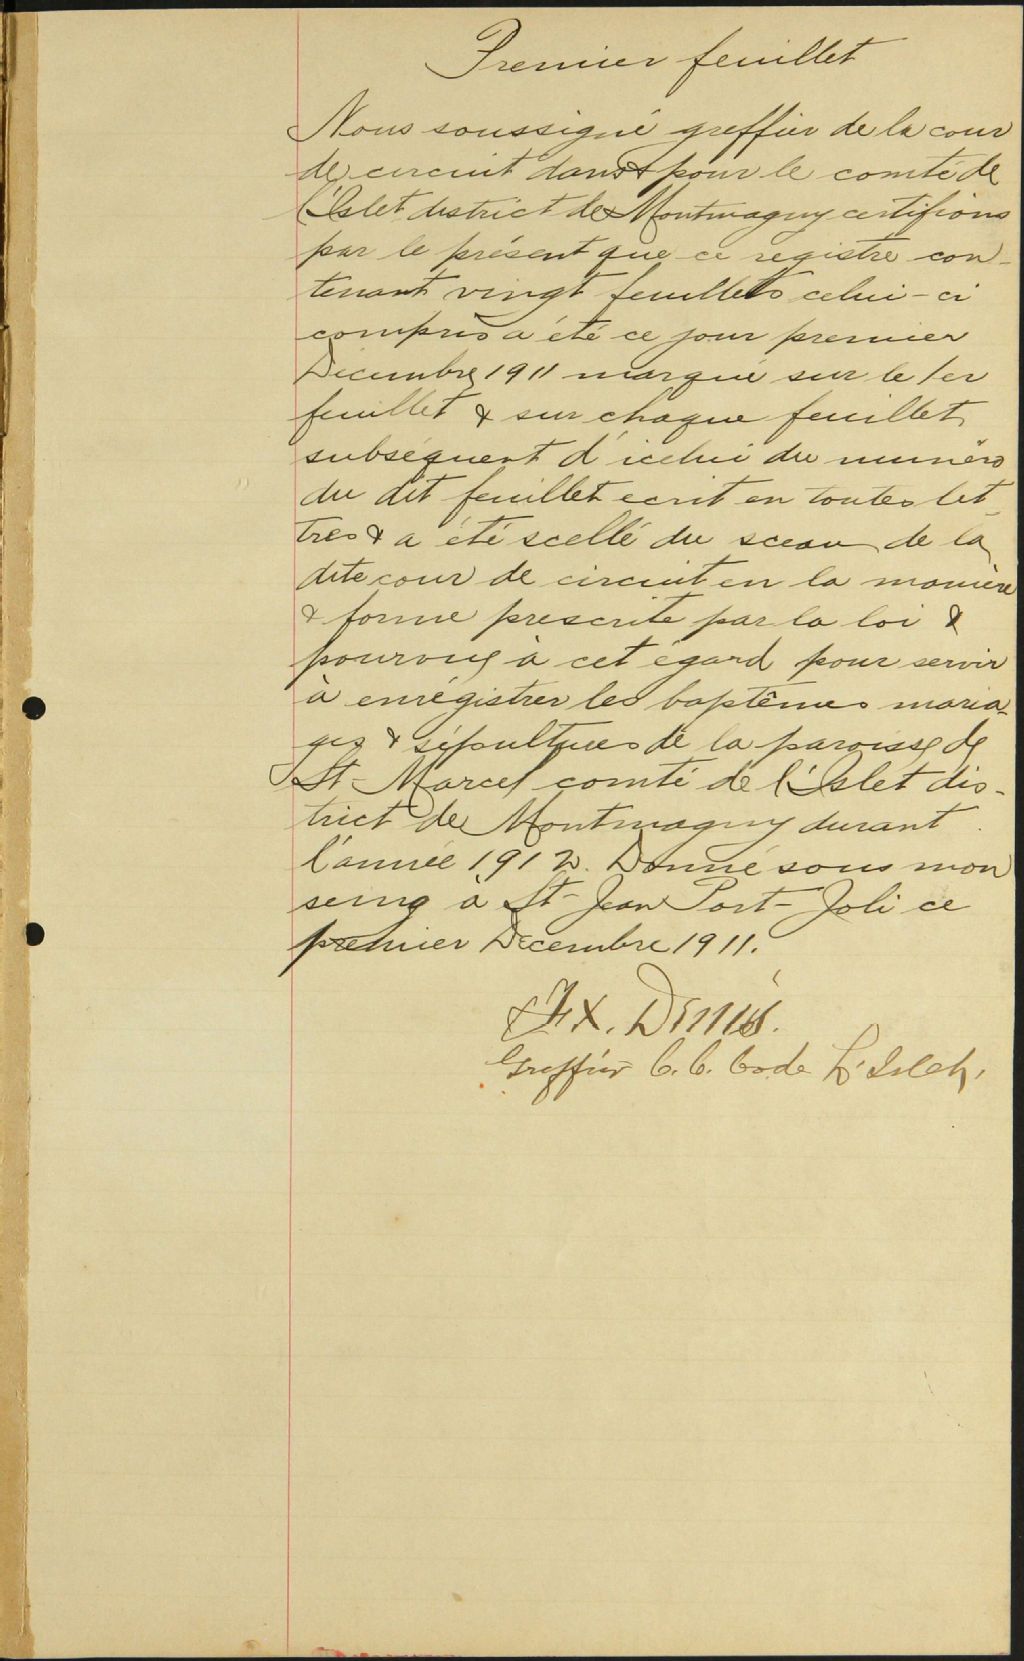 Premier feuillet
Nous soussigné greffier de la cour
de circuit dans & pour le comté de
l'Islet district de Montmagny certifions
par le présent que ce registre con-
tenant vingt feuillets celui-ci
compris a été ce jour premier
Décembre 1911 marqué sur le 1er
feuillet & sur chaque feuillet
subséquent d'icelui du numéro
du dit feuillet ecrit en toutes let-
tres & a été scellé du sceau de la
dite cour de circuit en la manière
& forme prescrite par la loi &
pourvue à cet égard pour servir
à enrégistrer les baptêmes maria-
ges & sépultures de la paroisse de
St-Marcel comté de l'Islet dis-
trict de Montmagny durant
l'année 1912. Donné sous mon
seing à St-Jean Port-Joli ce
premier Décembre 1911.
FX. Dénis.
Greffier C. C. Co de L'Islet.